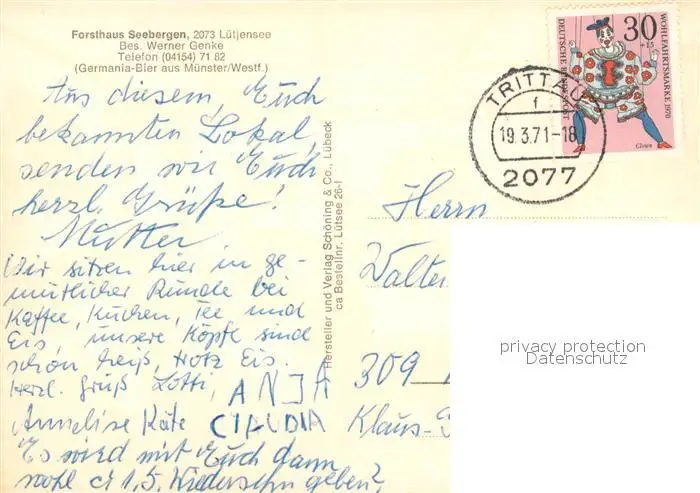 Forsthaus Seebergen, 2073 Lütjensee
Bes. Werner Genke
Telefon (04154) 71 82
(Germania-Bier aus Münster/Westf.)
Aus diesem, Euch
bekannten Lokal,
senden wir Euch
herzl. Grüße!
Mutter
Wir sitzen hier in ge-
mütlicher Runde bei
Kaffee, Kuchen, Tee und
Eis, unsere Köpfe sind
schon heiß, trotz Eis.
Herzl. Gruß Lotti,
ANJA
Annelise Käte CLAUDIA
Es wird mit Euch dann
wohl 1.5. Wiedersehn geben?
Hersteller und Verlag Schöning & Co., Lübeck
ca Bestellnr. Lütsee 26-I
TRITTAU
f
19.3.71-18
2077
30
+15
WOHLFAHRTSMARKE 1970
DEUTSCHE BUNDESPOST
Clown
Herrn
Walter
309
Klaus-
privacy protection
Datenschutz